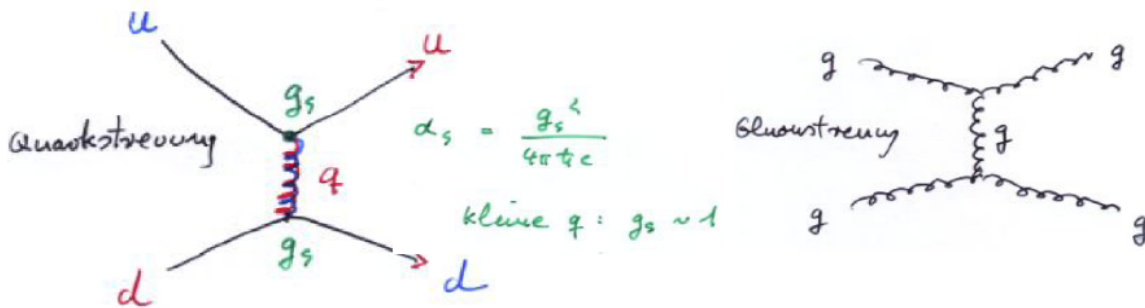 u
u
g_s
Quarkstreuung
α_s = g_s² / 4πħc
q
kleine q : g_s ~ 1
g_s
d
d
g
g
Gluonstreuung
g
g
g